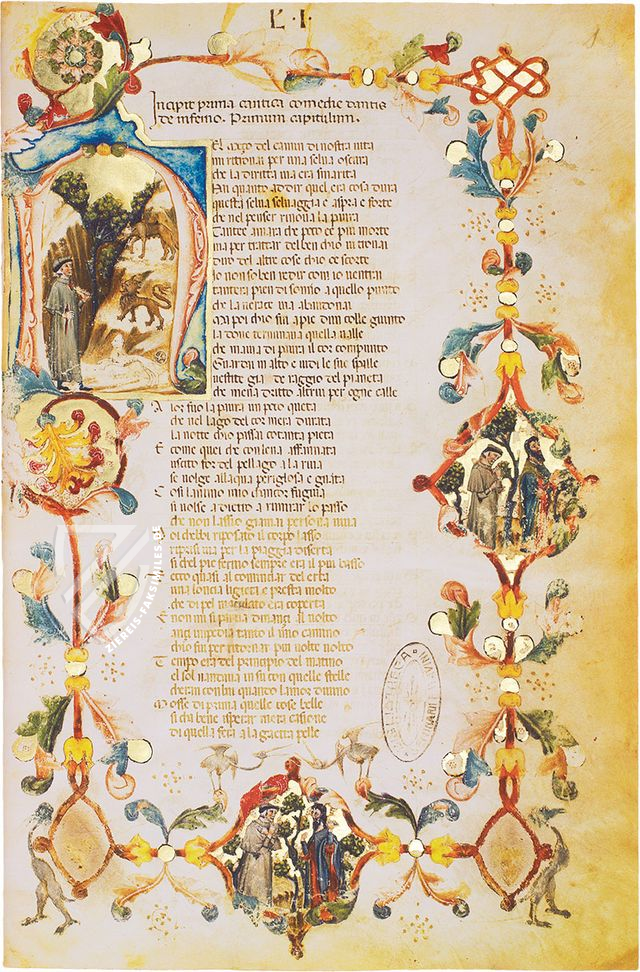 L · I ·
Incipit prima cantica comedie dantis
de inferno. Primum capitulum.
El mezo del camin di nostra uita
mi ritrouai per una selua oscura
che la diritta uia era smarita
quanto a dir quel era cosa dura
questa selua seluaggia e aspra e forte
che nel penser rinoua la paura
Tante amara che poco e piu morte
ma per trattar del ben chio ui trouai
diro del altre cose chio ce scorte
Io non so ben redir com io uentrai
tantera pien di sonno a quello punto
che la uerace uia abandonai
Ma poi chio fui a pie dun colle giunto
la doue terminaua quella ualle
che mauia di paura il cor compunto
Guardai in alto e uidi le sue spalle
uestite gia de raggio del pianeta
che mena dritto altrui per ogne calle
Alor fuo la paura un poco queta
che nel lago del cor mera durata
la notte chio passai cotanta pieta
E come quei che con lena affannata
uscito for del pellago a la riua
se uolge allaqua perigliosa e guata
Cosi lanimo mio chancor fugiua
si uolse a dietro a rimirar lo passo
che non lasso giamai persona uiua
riposato il corpo lasso
ripresi uia per la piaggia diserta
si chel pie fermo sempre era il piu basso
ecco quasi al cominciar del erta
una loncia ligiera e presta molto
che di pel maculato era coperta
E non mi si partia dinanci al uolto
anci impedia tanto il mio camino
chio fui per ritornar piu uolte uolto
Tempo era del principio del matino
el sol montaua in su con quelle stelle
cheran con lui quando lamor diuino
Mosse di prima quelle cose belle
si cha bene sperar mera casione
di quella fera a la gaetta pelle
ZIEREIS-FAKSIMILES.DE